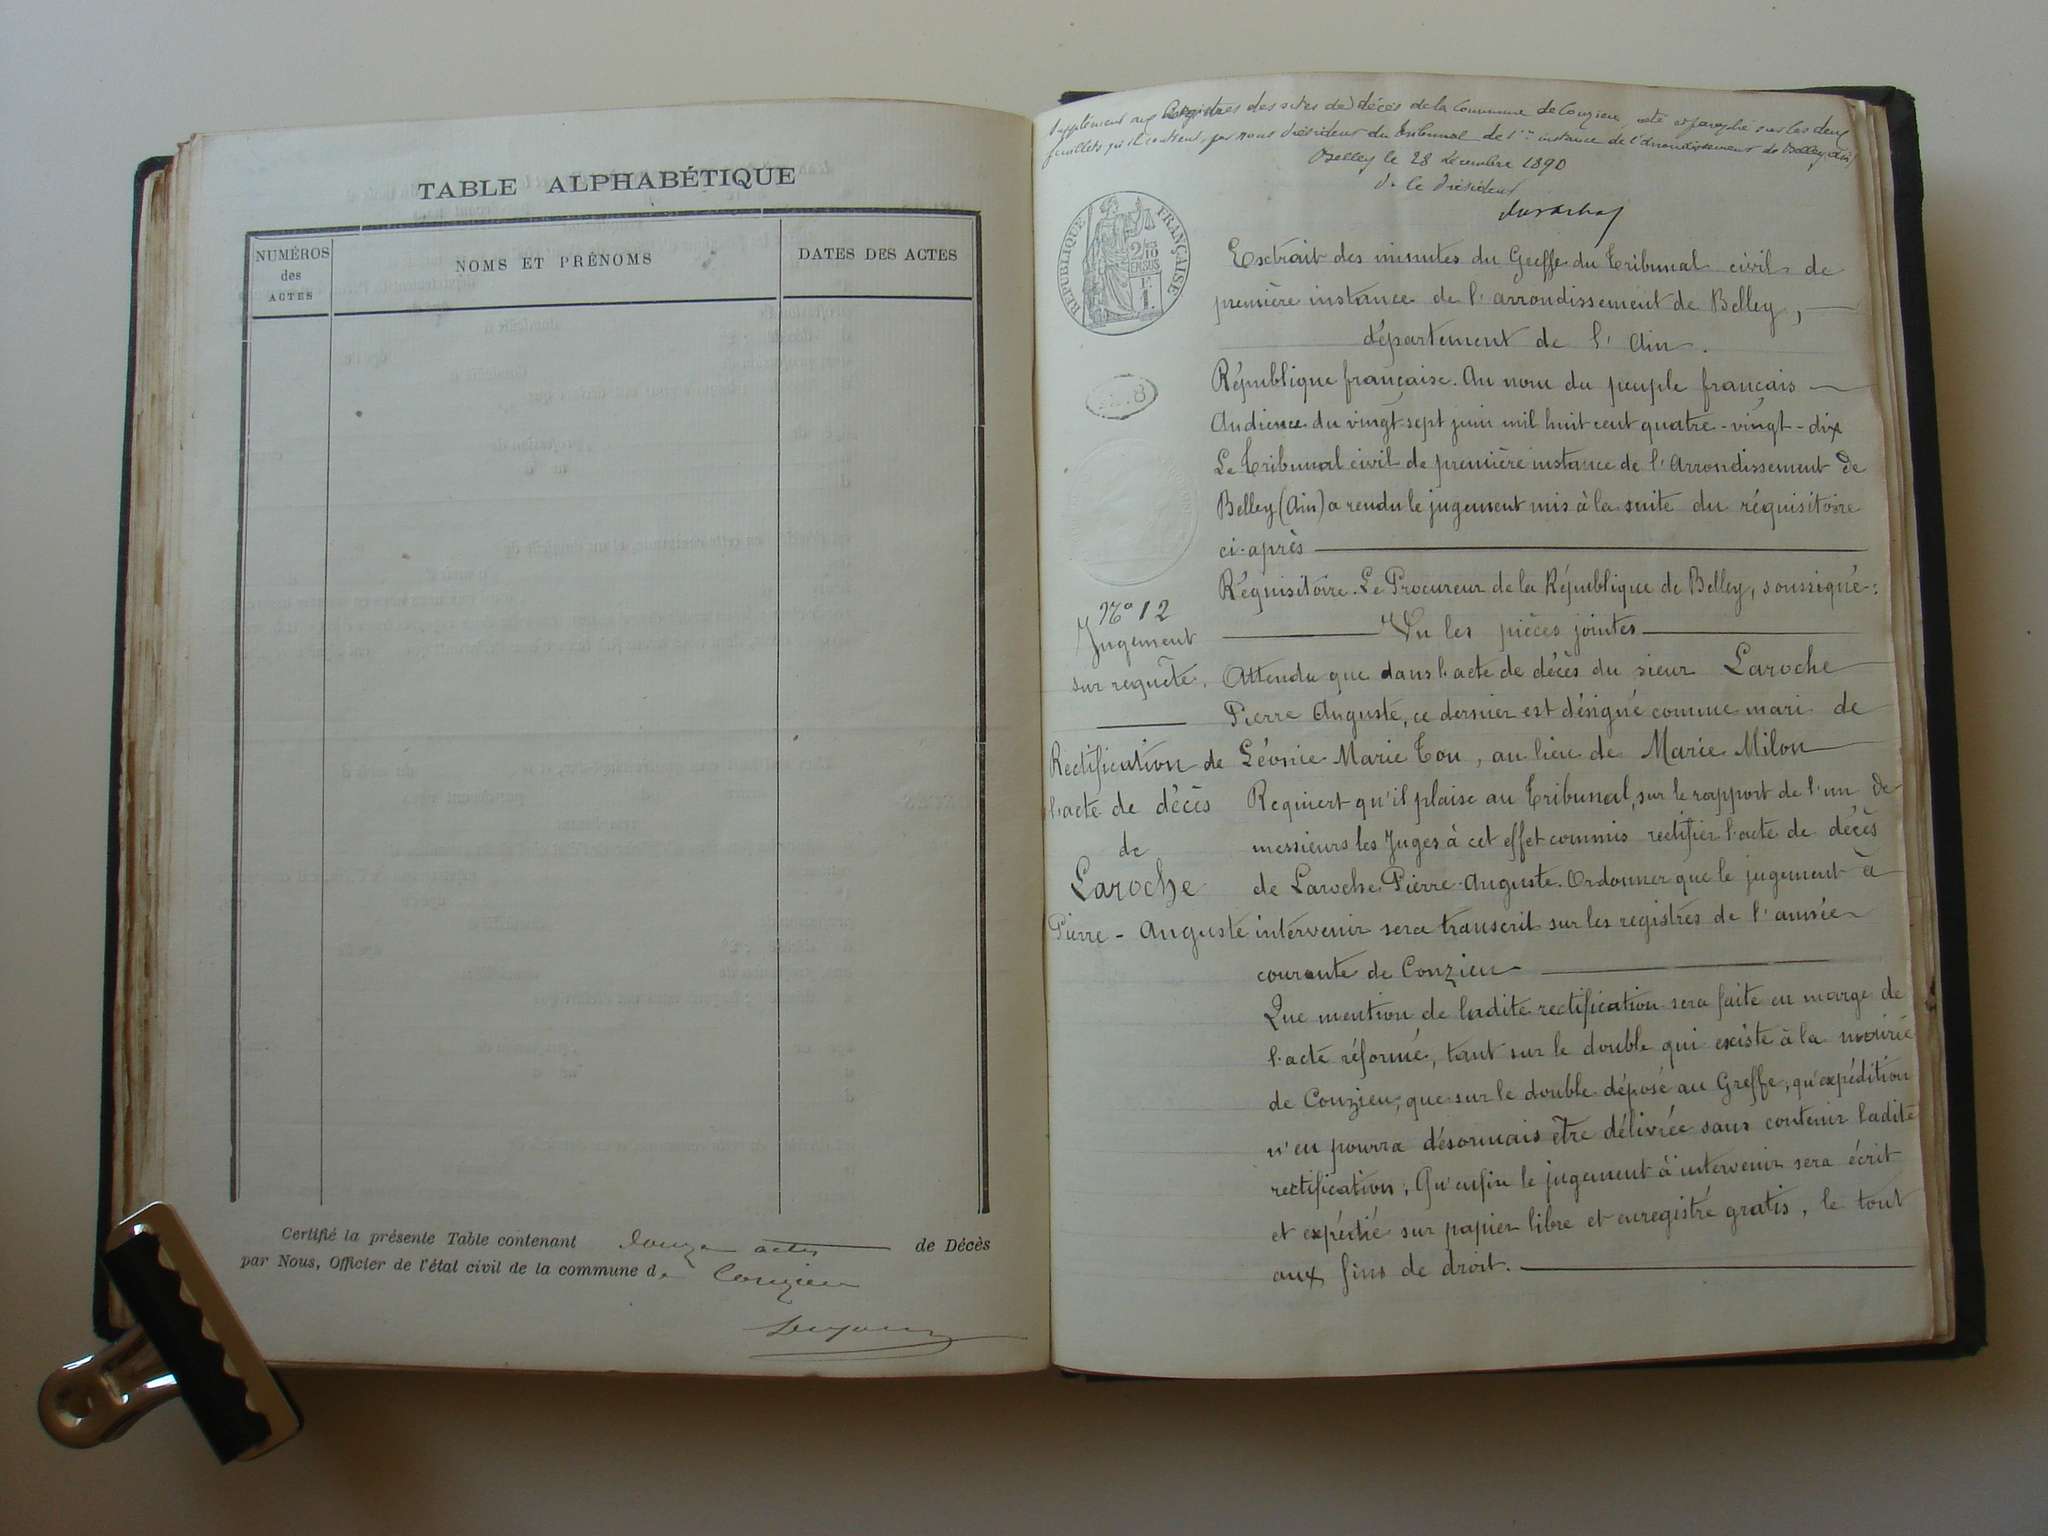 TABLE ALPHABÉTIQUE
NUMÉROS
des
ACTES
NOMS ET PRÉNOMS
DATES DES ACTES
Certifié la présente Table contenant douze actes de Décès
par Nous, Officier de l'état civil de la commune de Conzieu
Supplément aux Registres des actes de décès de la Commune de Conzieu, coté et paraphé sur les deux
feuillets qu'il contient, par nous Président du Tribunal de 1ère instance de l'arrondissement de Belley (Ain)
Belley le 28 Décembre 1890
P. le Président
RÉPUBLIQUE FRANÇAISE
2/10
EN SUS
1 F.
Extrait des minutes du Greffe du Tribunal civil de
première instance de l'arrondissement de Belley,
département de l'Ain.
République française. Au nom du peuple français
Audience du vingt-sept juin mil huit cent quatre-vingt-dix
Le Tribunal civil de première instance de l'Arrondissement de
Belley (Ain) a rendu le jugement mis à la suite du réquisitoire
ci-après
Réquisitoire. Le Procureur de la République de Belley, soussigné:
Vu les pièces jointes
Attendu que dans l'acte de décès du sieur Laroche
Pierre Auguste, ce dernier est désigné comme mari de
Léonie Marie Tou, au lieu de Marie Milon
Requiert qu'il plaise au Tribunal, sur le rapport de l'un de
messieurs les Juges à cet effet commis rectifier l'acte de décès
de Laroche Pierre-Auguste. Ordonner que le jugement à
intervenir sera transcrit sur les registres de l'année
courante de Conzieu
Que mention de ladite rectification sera faite en marge de
l'acte réformé, tant sur le double qui existe à la mairie
de Conzieu, que sur le double déposé au Greffe, qu'expédition
n'en pourra désormais être délivrée sans contenir ladite
rectification, Qu'enfin le jugement à intervenir sera écrit
et expédié sur papier libre et enregistré gratis, le tout
aux fins de droit.
N° 12
Jugement
sur requête.
Rectification de
l'acte de décès
de
Laroche
Pierre-Auguste